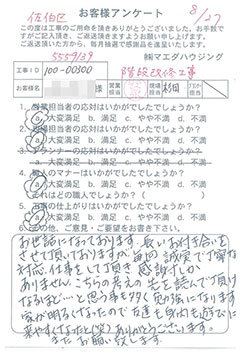 佐伯区
お客様アンケート
8/27
この度は工事のご用命を頂きありがとうございました。お手数で
すがご記入頂き、ご返送頂きますようお願い申し上げます。
ご返送頂いた方から、毎月抽選で感謝品を進呈いたします。
5559/39
㈱マエダハウジング
工事ID
100-00300
階段改修工事
お客様名
様
営業担当
現場担当
杉田
アシスト担当
1. 営業担当者の応対はいかがでしたでしょうか?
a. 大変満足 b. 満足 c. やや不満 d. 不満
2. 現場担当者の応対はいかがでしたでしょうか?
a. 大変満足 b. 満足 c. やや不満 d. 不満
3.
a. 大変満足 b. 満足 c. やや不満 d. 不満
4. 職人のマナーはいかがでしたでしょうか?
a. 大変満足 b. 満足 c. やや不満 d. 不満
それはどの職人でしょうか?(
5. 工事の仕上がりはいかがでしたでしょうか?
a. 大変満足 b. 満足 c. やや不満 d. 不満
6. その他、ご意見・ご要望をお書き下さい。
お世話になっております。長いお付き合いを
させて頂いておりますが、毎回誠実で丁寧な
対応、仕事をして頂き感謝しか
ありません。こちらの考えの先を読んで頂け
なるほど…と思う事も多く勉強になります。
家が明るくなったので友達も気がねなく遊びに
来やすくなったと(笑)ありがとうございます。
またお願い致します。